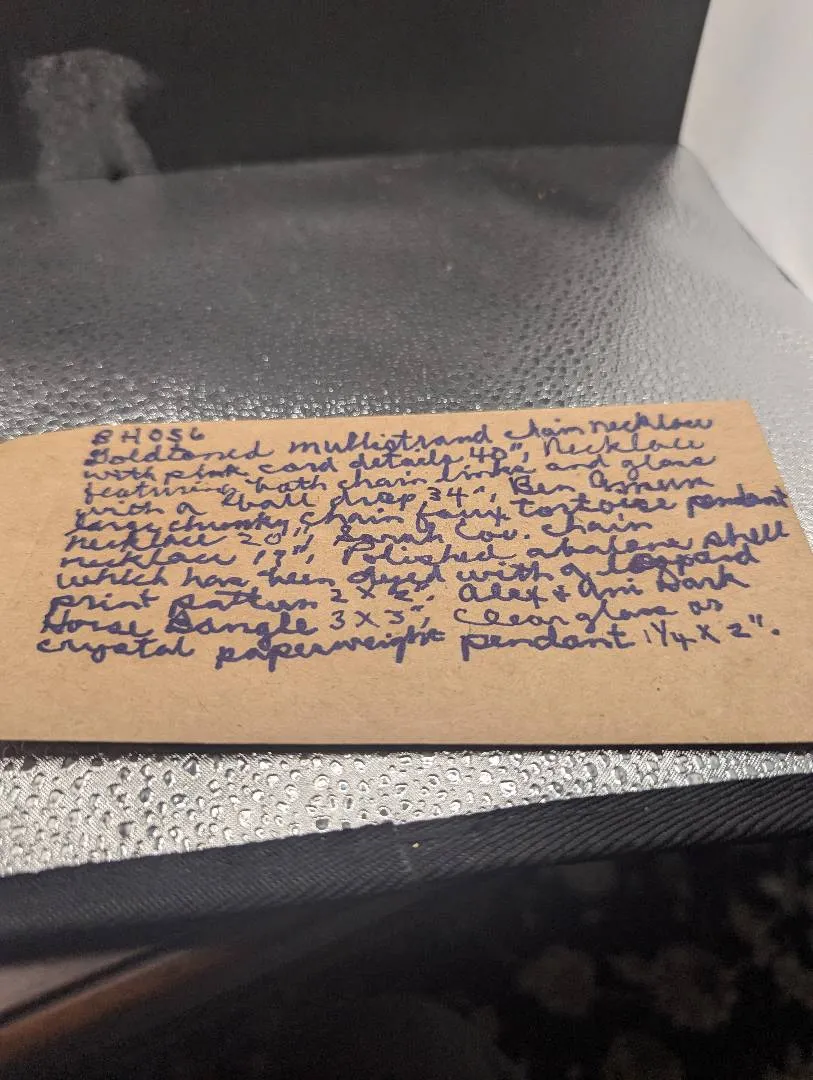 BH056
Goldtoned multistrand chain necklace
with pink cord details 40", Necklace
featuring both chain links and glass
with a ball drop 34", Ben Amun
large chunky chain faux tortoise pendant
necklace 20", Sarah Cov. chain
necklace 17", Polished abalone shell
which have been dyed with a leopard
print pattern 2 X 2", Alex + Ani Dark
Horse Bangle 3 X 3", Clear glass or
crystal paperweight pendant 1 1/4 X 2".